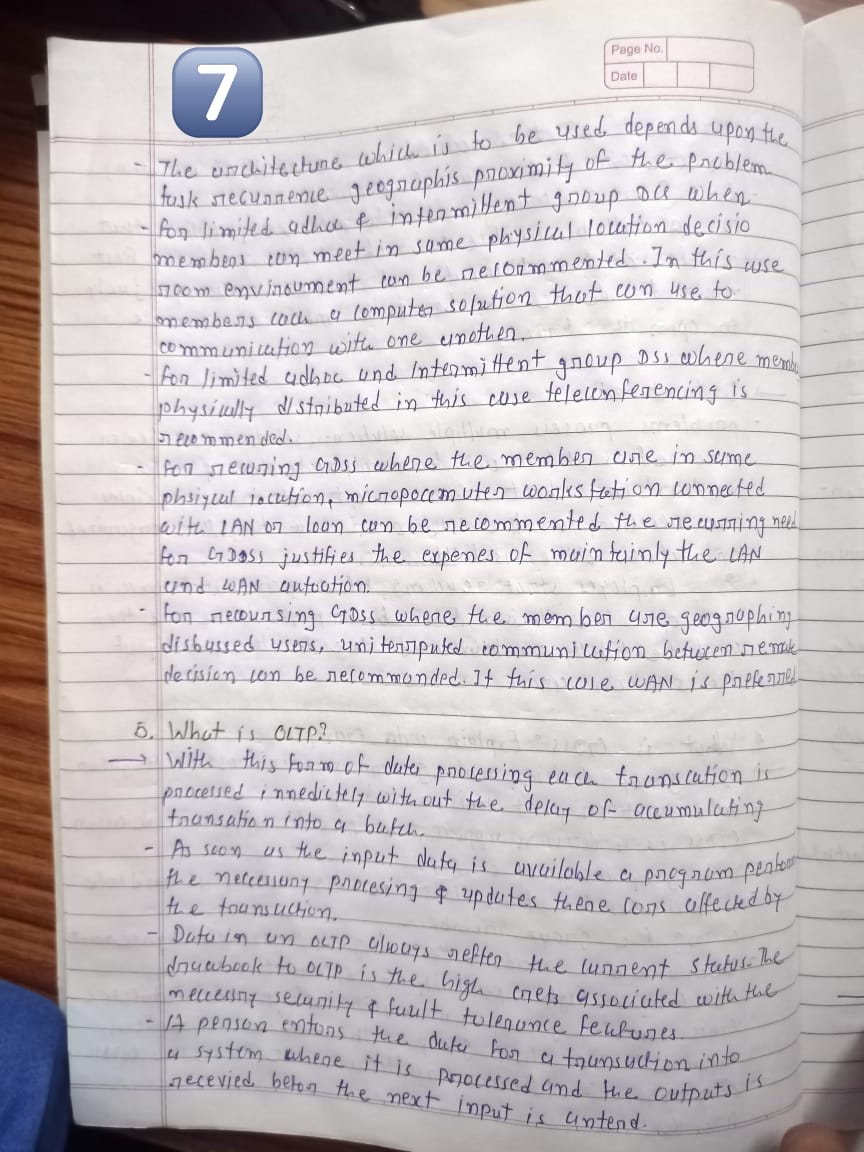 7
Page No.
Date
- The architecture which is to be used depends upon the
task recurrence geographis proximity of the problem
- for limited adhoc & intermittent group DCC when
members can meet in same physical location decisio
room envinoument can be recommented. In this case
members each a computer solution that con use to
communication with one another.
- for limited adhoc and Intermittent group DSS where membe
physically distributed in this case teleconferencing is
recommended.
- for recurring GDSS where the member are in same
phsiycal location, micropocemuter workstation connected
with LAN or loan can be recommented the recurring need
for GDOSS justifies the expenes of maintainly the LAN
and WAN autoction.
- for recoursing GDSS where the member are geographing
disbussed users, uniterrputed communication between remote
decision con be recommanded. If this case WAN is preferred
5. What is OLTP?
→ With this form of data processing each transcation is
processed innedictely without the delay of accumulating
transation into a batch.
- As soon as the input data is available a program perform
the neccessary procesing & updates there cons affected by
the transuction.
- Data in an OLTP always reflter the current status. The
draewbook to OLTP is the high crets associated with the
meccessry security & fault tolerance features.
- A person entors the data for a transuction into
a system where it is processed and the outputs is
recevied befor the next input is antend.